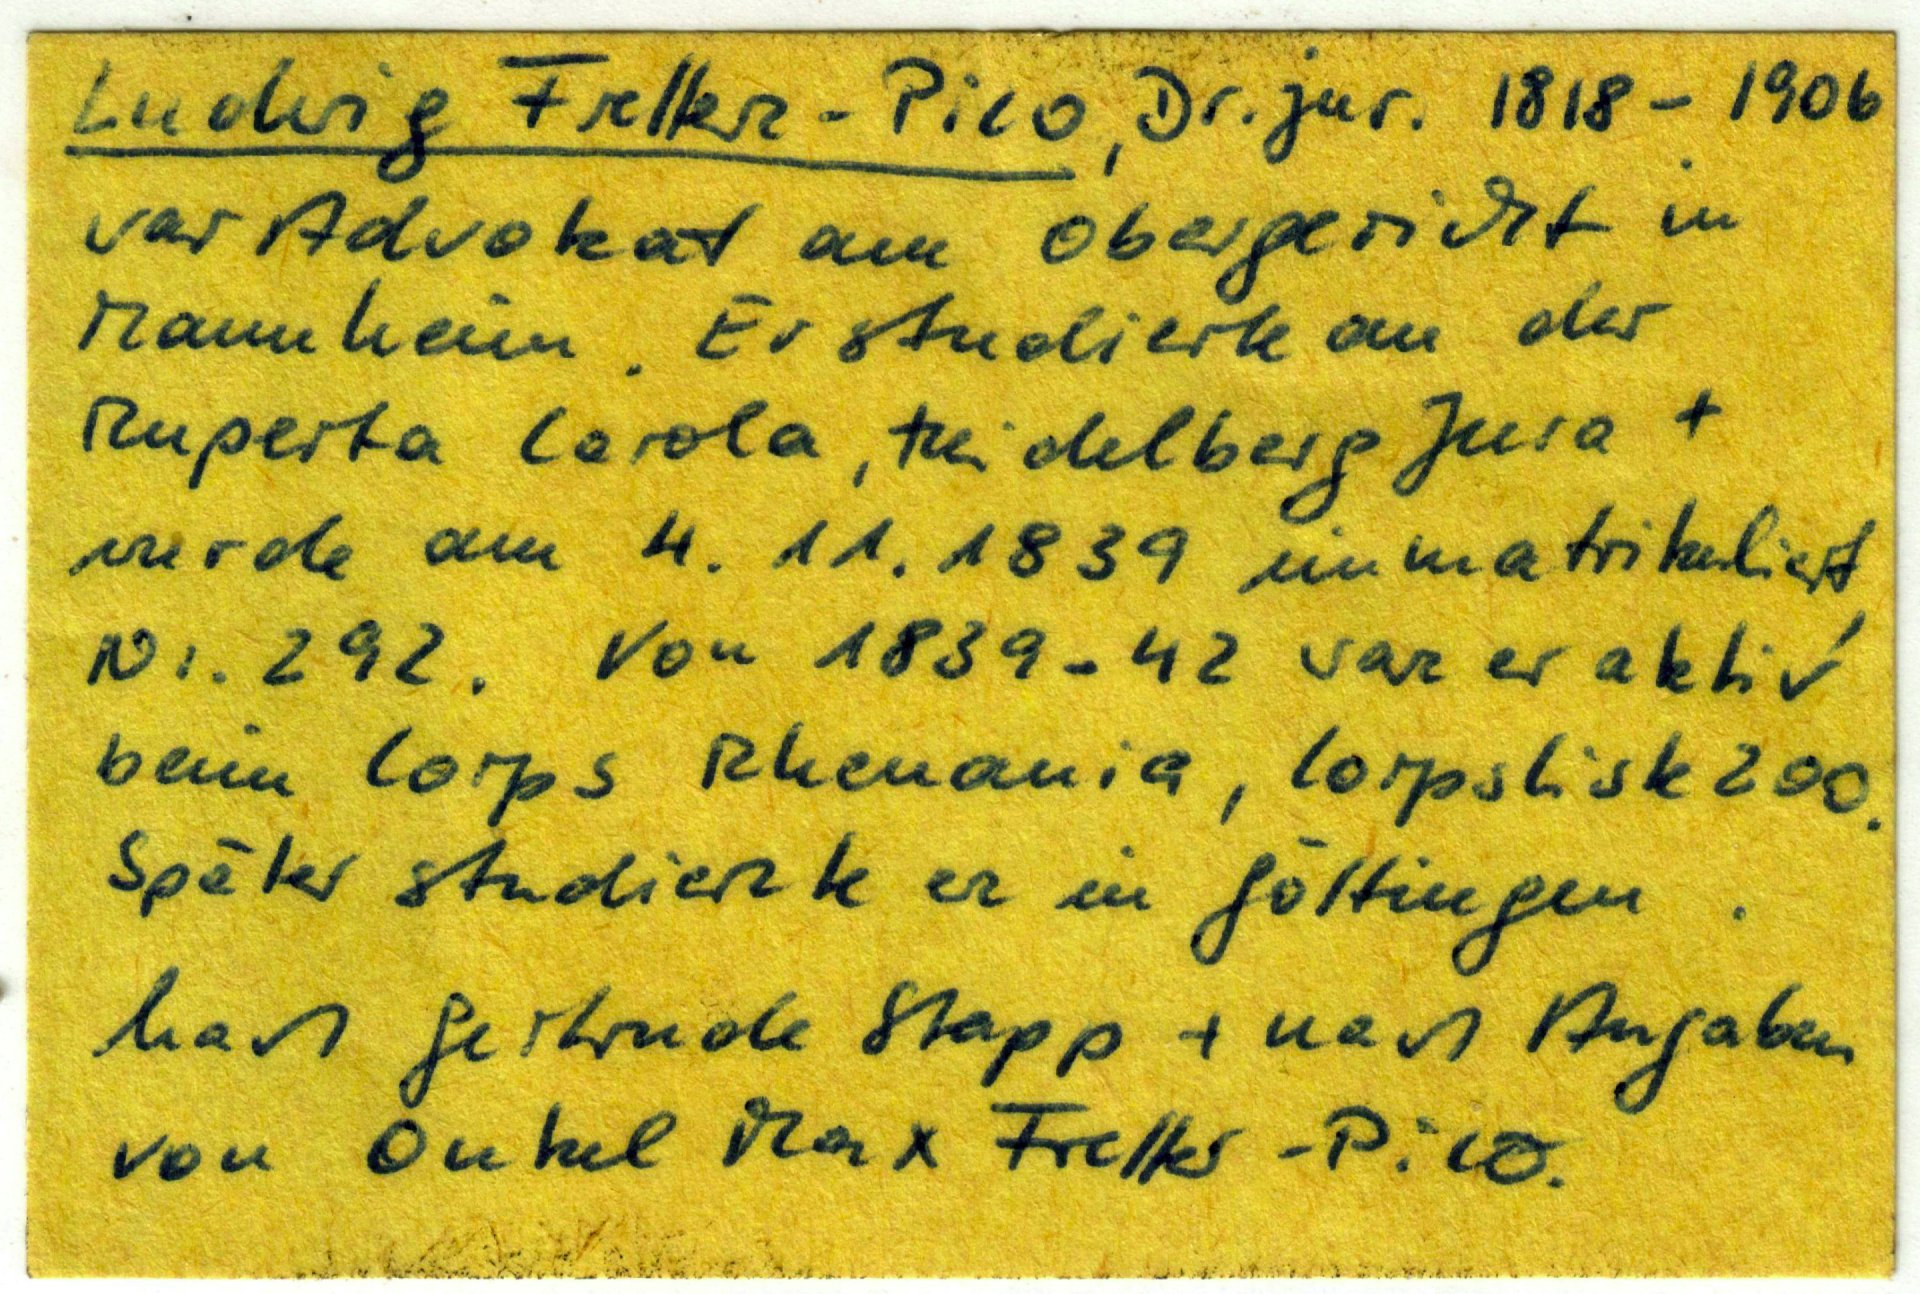 Ludwig Fretter-Pico, Dr. jur. 1818 - 1906
war Advokat am Obergericht in
Mannheim. Er studierte an der
Ruperta Carola, Heidelberg Jura +
wurde am 4. 11. 1839 immatrikuliert
Nr. 292. Von 1839-42 war er aktiv
beim Corps Rhenania, Corpsliste 200.
Später studierte er in Göttingen.
nach Gertrude Stapp + nach Angaben
von Onkel Max Fretter-Pico.